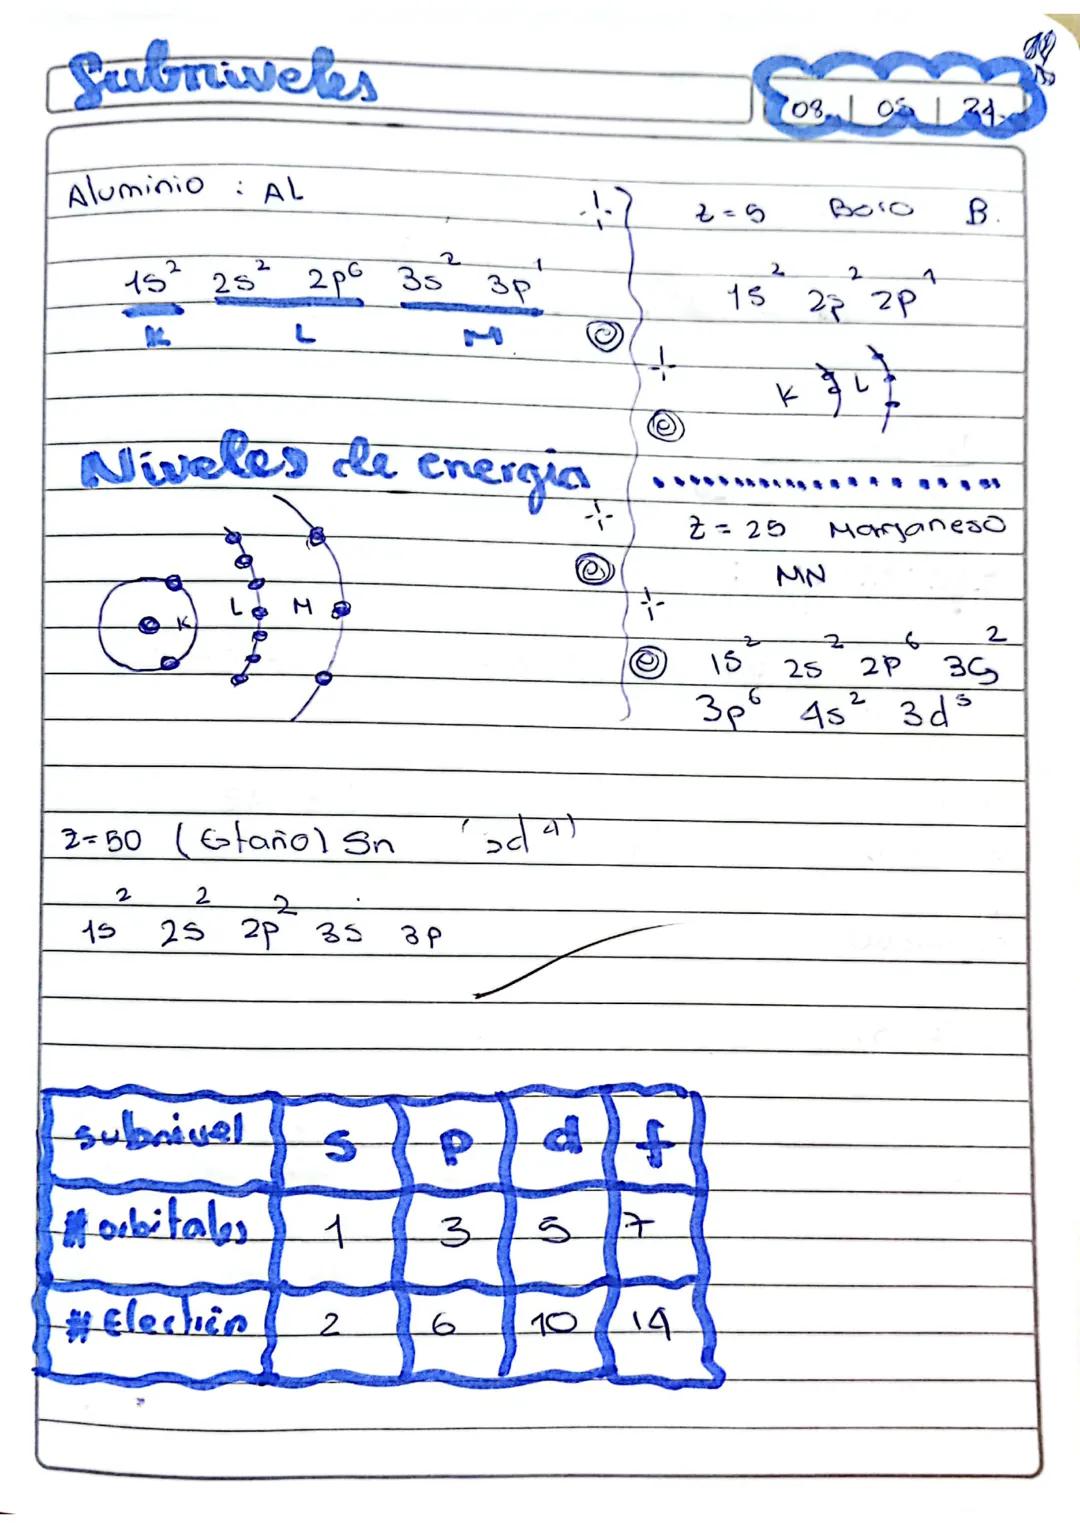 Subniveles
08 | 05 | 24
Aluminio : AL
1s² 2s² 2p⁶ 3s² 3p¹
K L M
Niveles de energía
K L M
z=5 Boro B.
1s² 2s² 2p¹
K L
z=25 Manganeso
MN
1s² 2s² 2p⁶ 3s²
3p⁶ 4s² 3d⁵
z=50 (Estaño) Sn
1s² 2s² 2p² 3s 3p
subnivel s p d f
# orbitales 1 3 5 7
# Electrón 2 6 10 14